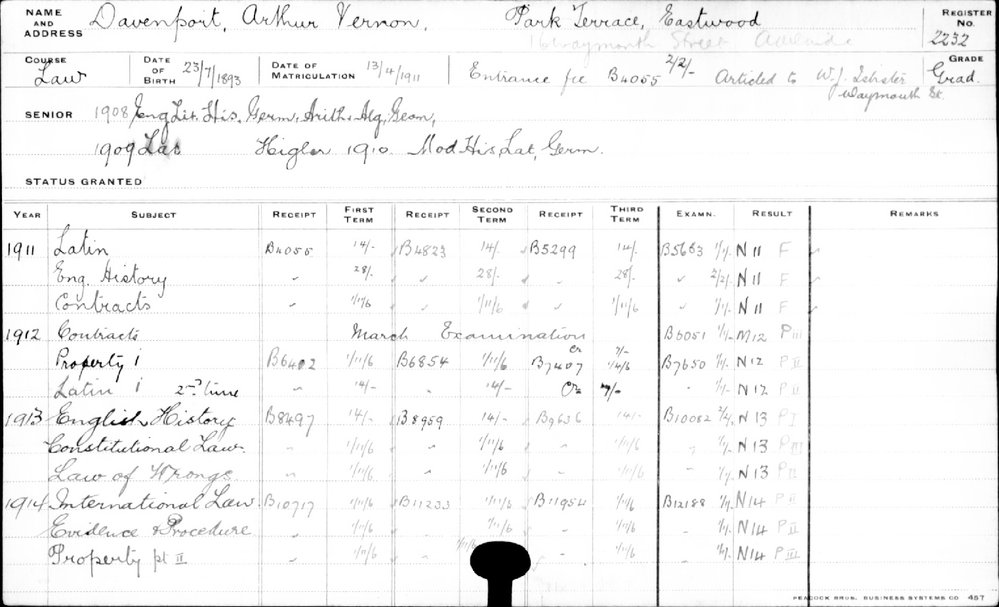 NAME AND ADDRESS Davenport, Arthur Vernon. Park Terrace, Eastwood REGISTER No. 2232
Waymouth Street Adelaide
COURSE Law DATE OF BIRTH 23/7/1893 DATE OF MATRICULATION 13/4/1911 Entrance fee B4055 2/2/- Articled to W.J. Waymouth St. GRADE Grad.
SENIOR 1908 Eng Lit, His, Germ, Arith, Alg, Geom,
1909 Higher 1910 Mod His, Lat, Germ.
STATUS GRANTED
YEAR SUBJECT RECEIPT FIRST TERM RECEIPT SECOND TERM RECEIPT THIRD TERM EXAMN. RESULT REMARKS
1911 Latin B4055 14/- B4823 14/- B5299 14/- B5663 1/1/- N 11 F
Eng. History " 28/- " 28/- " 28/- " 2/2/- N 11 F
Contracts " 1/11/6 " 1/11/6 " 1/11/6 " 1/1/- N 11 F
1912 Contracts March Examination B6051 1/1/- M12 P III
Property I B6402 1/11/6 B6854 1/11/6 B7407 Cr 7/- 1/4/6 B7650 1/1/- N 12 P II
Latin I 2nd time " 14/- " 14/- Cr 7/- " 1/1/- N 12 P II
1913 English History B8497 14/- B8959 14/- B9636 14/- B10082 2/2/- N 13 P I
Constitutional Law " 1/11/6 " 1/11/6 " 1/11/6 " 1/1/- N 13 P III
Law of Wrongs " 1/11/6 " 1/11/6 " 1/11/6 " 1/1/- N 13 P II
1914 International Law B10717 1/11/6 B11233 1/11/6 B11954 1/11/6 B12188 1/1/- N14 P II
Evidence & Procedure " 1/11/6 " 1/11/6 " 1/11/6 " 1/1/- N14 P II
Property pt II " 1/11/6 1/11/6 " 1/11/6 " 1/1/- N14 P III
PEACOCK BROS. BUSINESS SYSTEMS CO 457